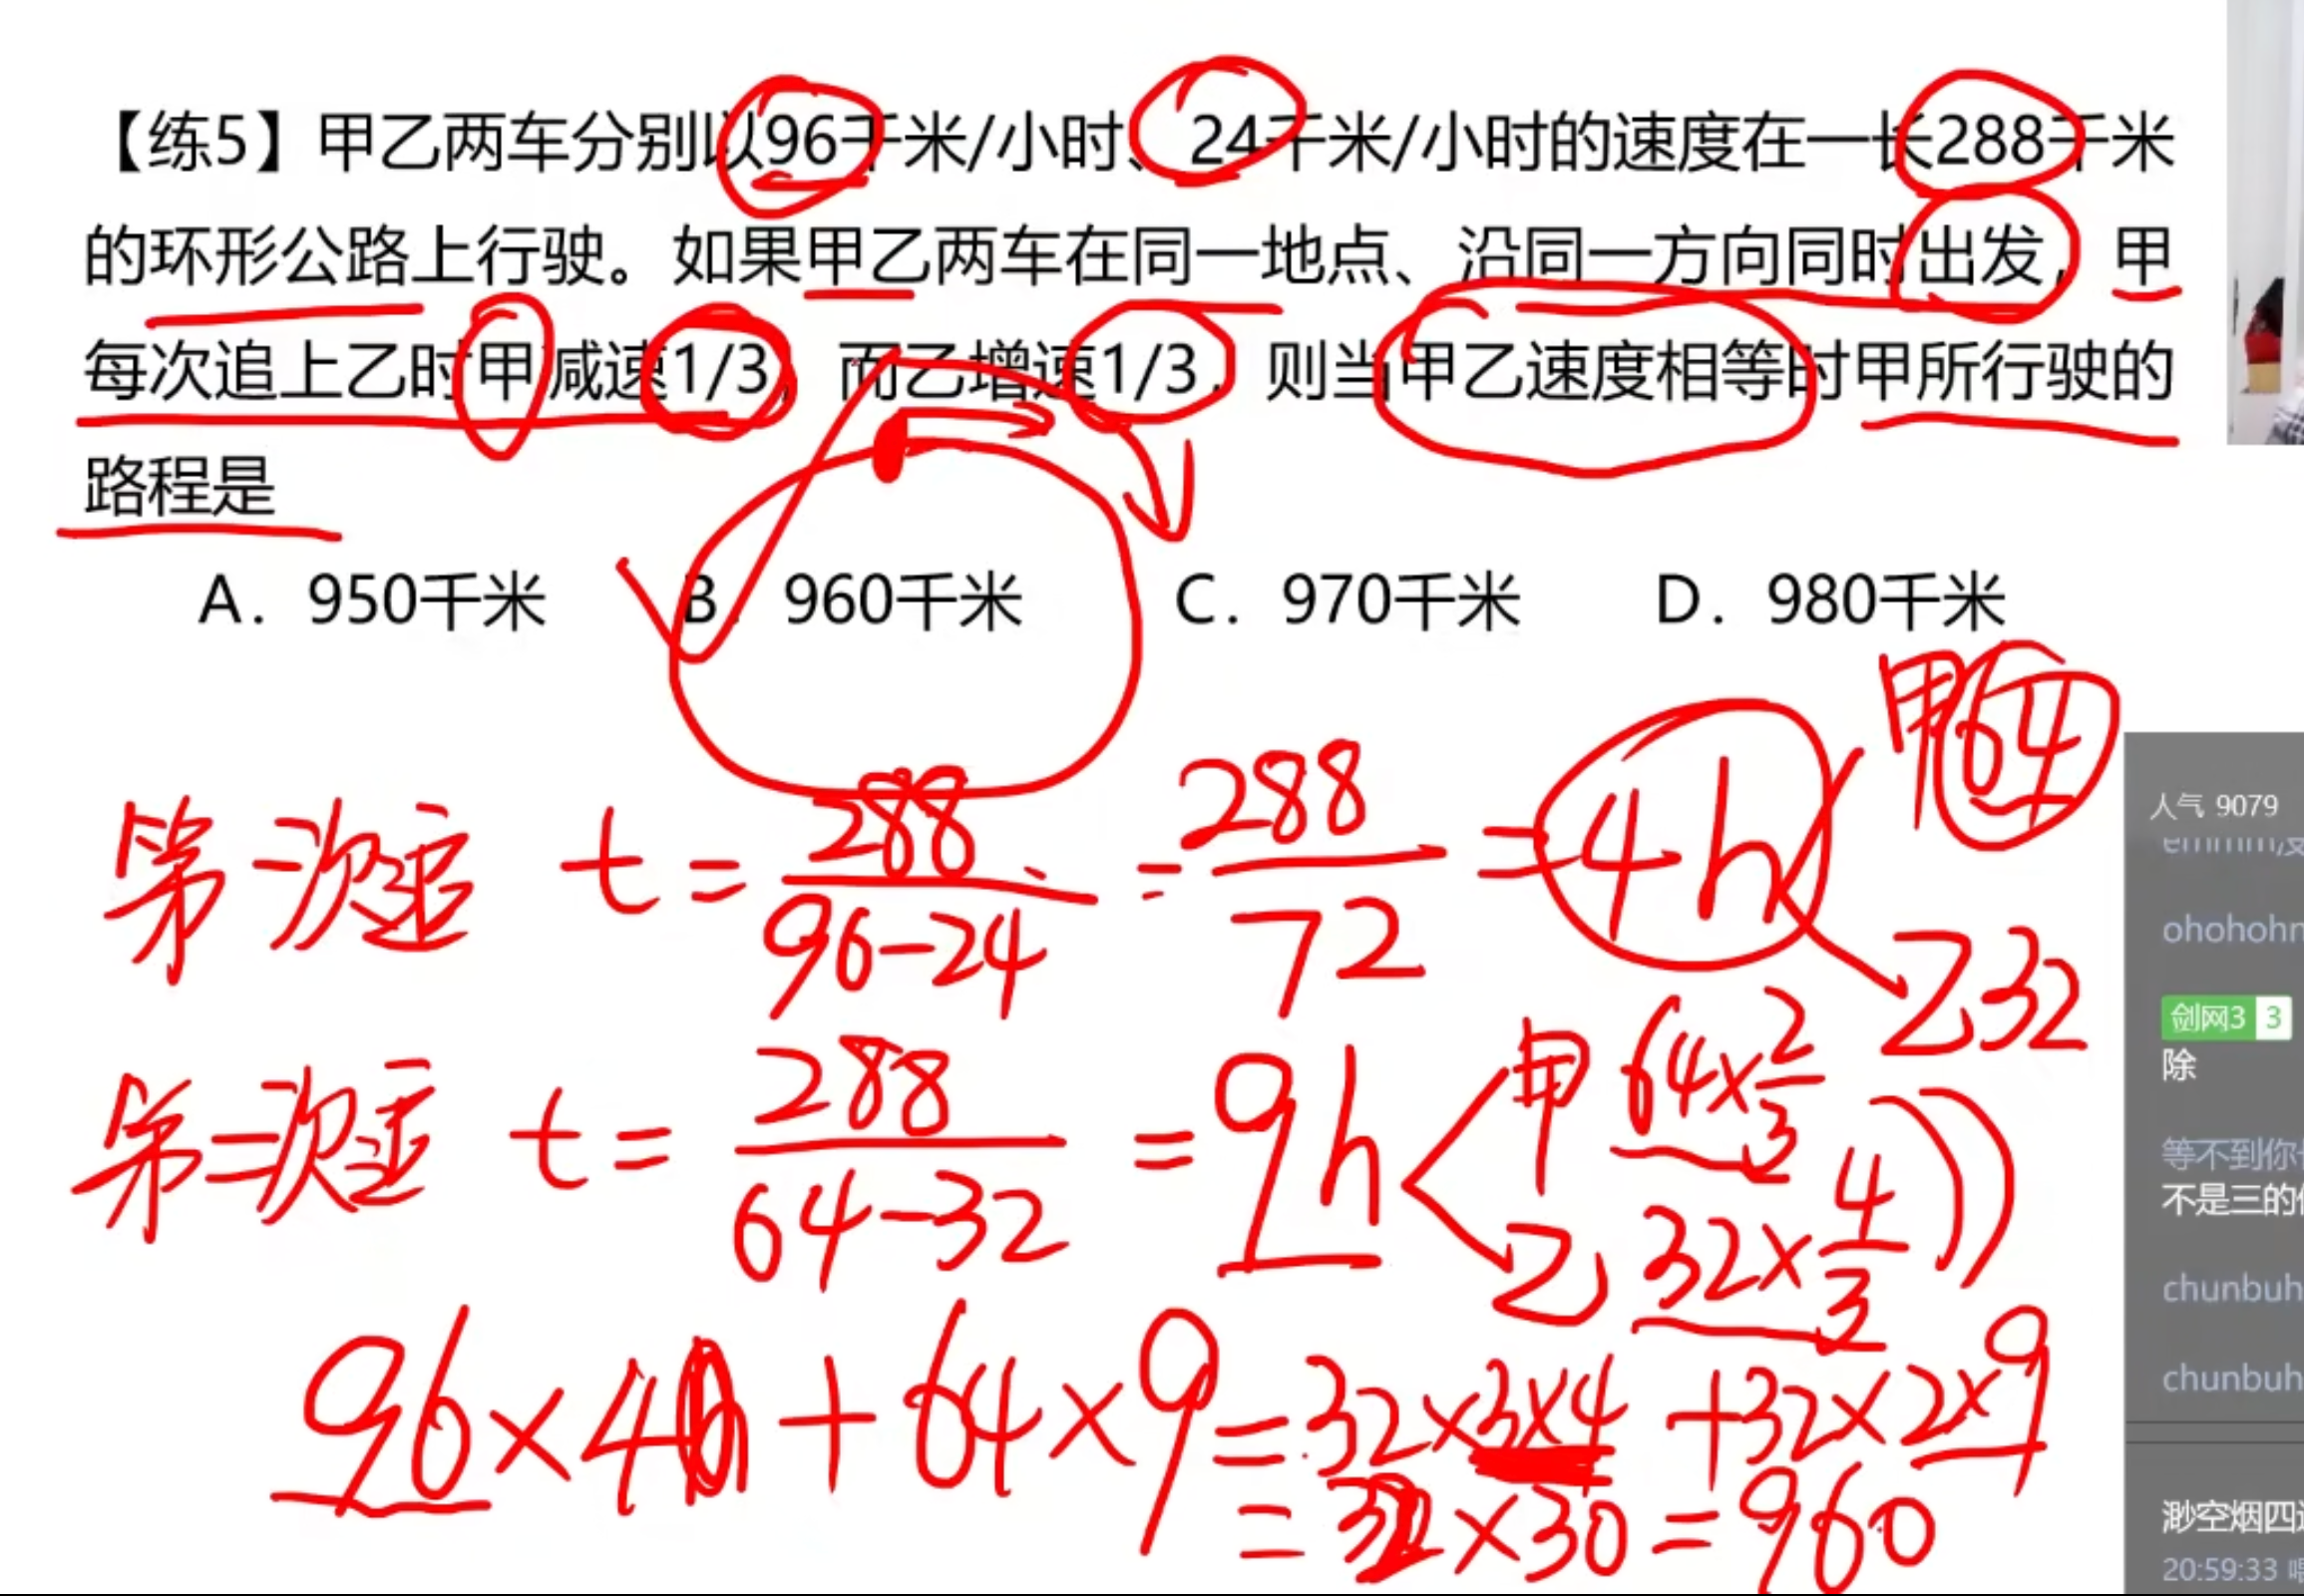 【练5】甲乙两车分别以96千米/小时、24千米/小时的速度在一长288千米
的环形公路上行驶。如果甲乙两车在同一地点、沿同一方向同时出发，甲
每次追上乙时甲减速1/3，而乙增速1/3，则当甲乙速度相等时甲所行驶的
路程是
A．950千米 B．960千米 C．970千米 D．980千米
甲64
第一次追 t = 288/(96-24) = 288/72 = 4h
乙32
第二次追 t = 288/(64-32) = 9h
甲 64×2/3
乙 32×4/3
96×4+64×9=32×3×4+32×2×9
=32×30=960
人气 9079
ohohohn
剑网3 3
除
等不到你
不是三的
chunbuh
chunbuh
渺空烟四
20:59:33